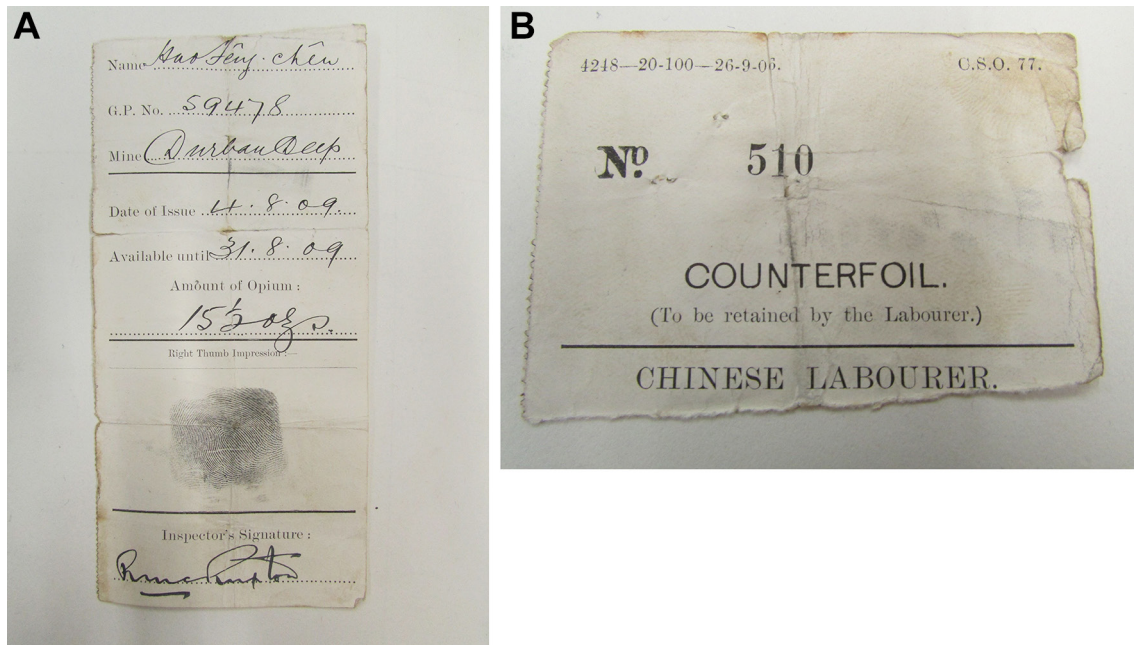 A
Name Hao Fêng-chên
G.P. No. 59478
Mine Durban Deep
Date of Issue 4.8.09
Available until 31.8.09
Amount of Opium :
15½ ozs.
Right Thumb Impression :—
Inspector's Signature :
B
4248—20-100—26-9-06. C.S.O. 77.
No. 510
COUNTERFOIL.
(To be retained by the Labourer.)
CHINESE LABOURER.